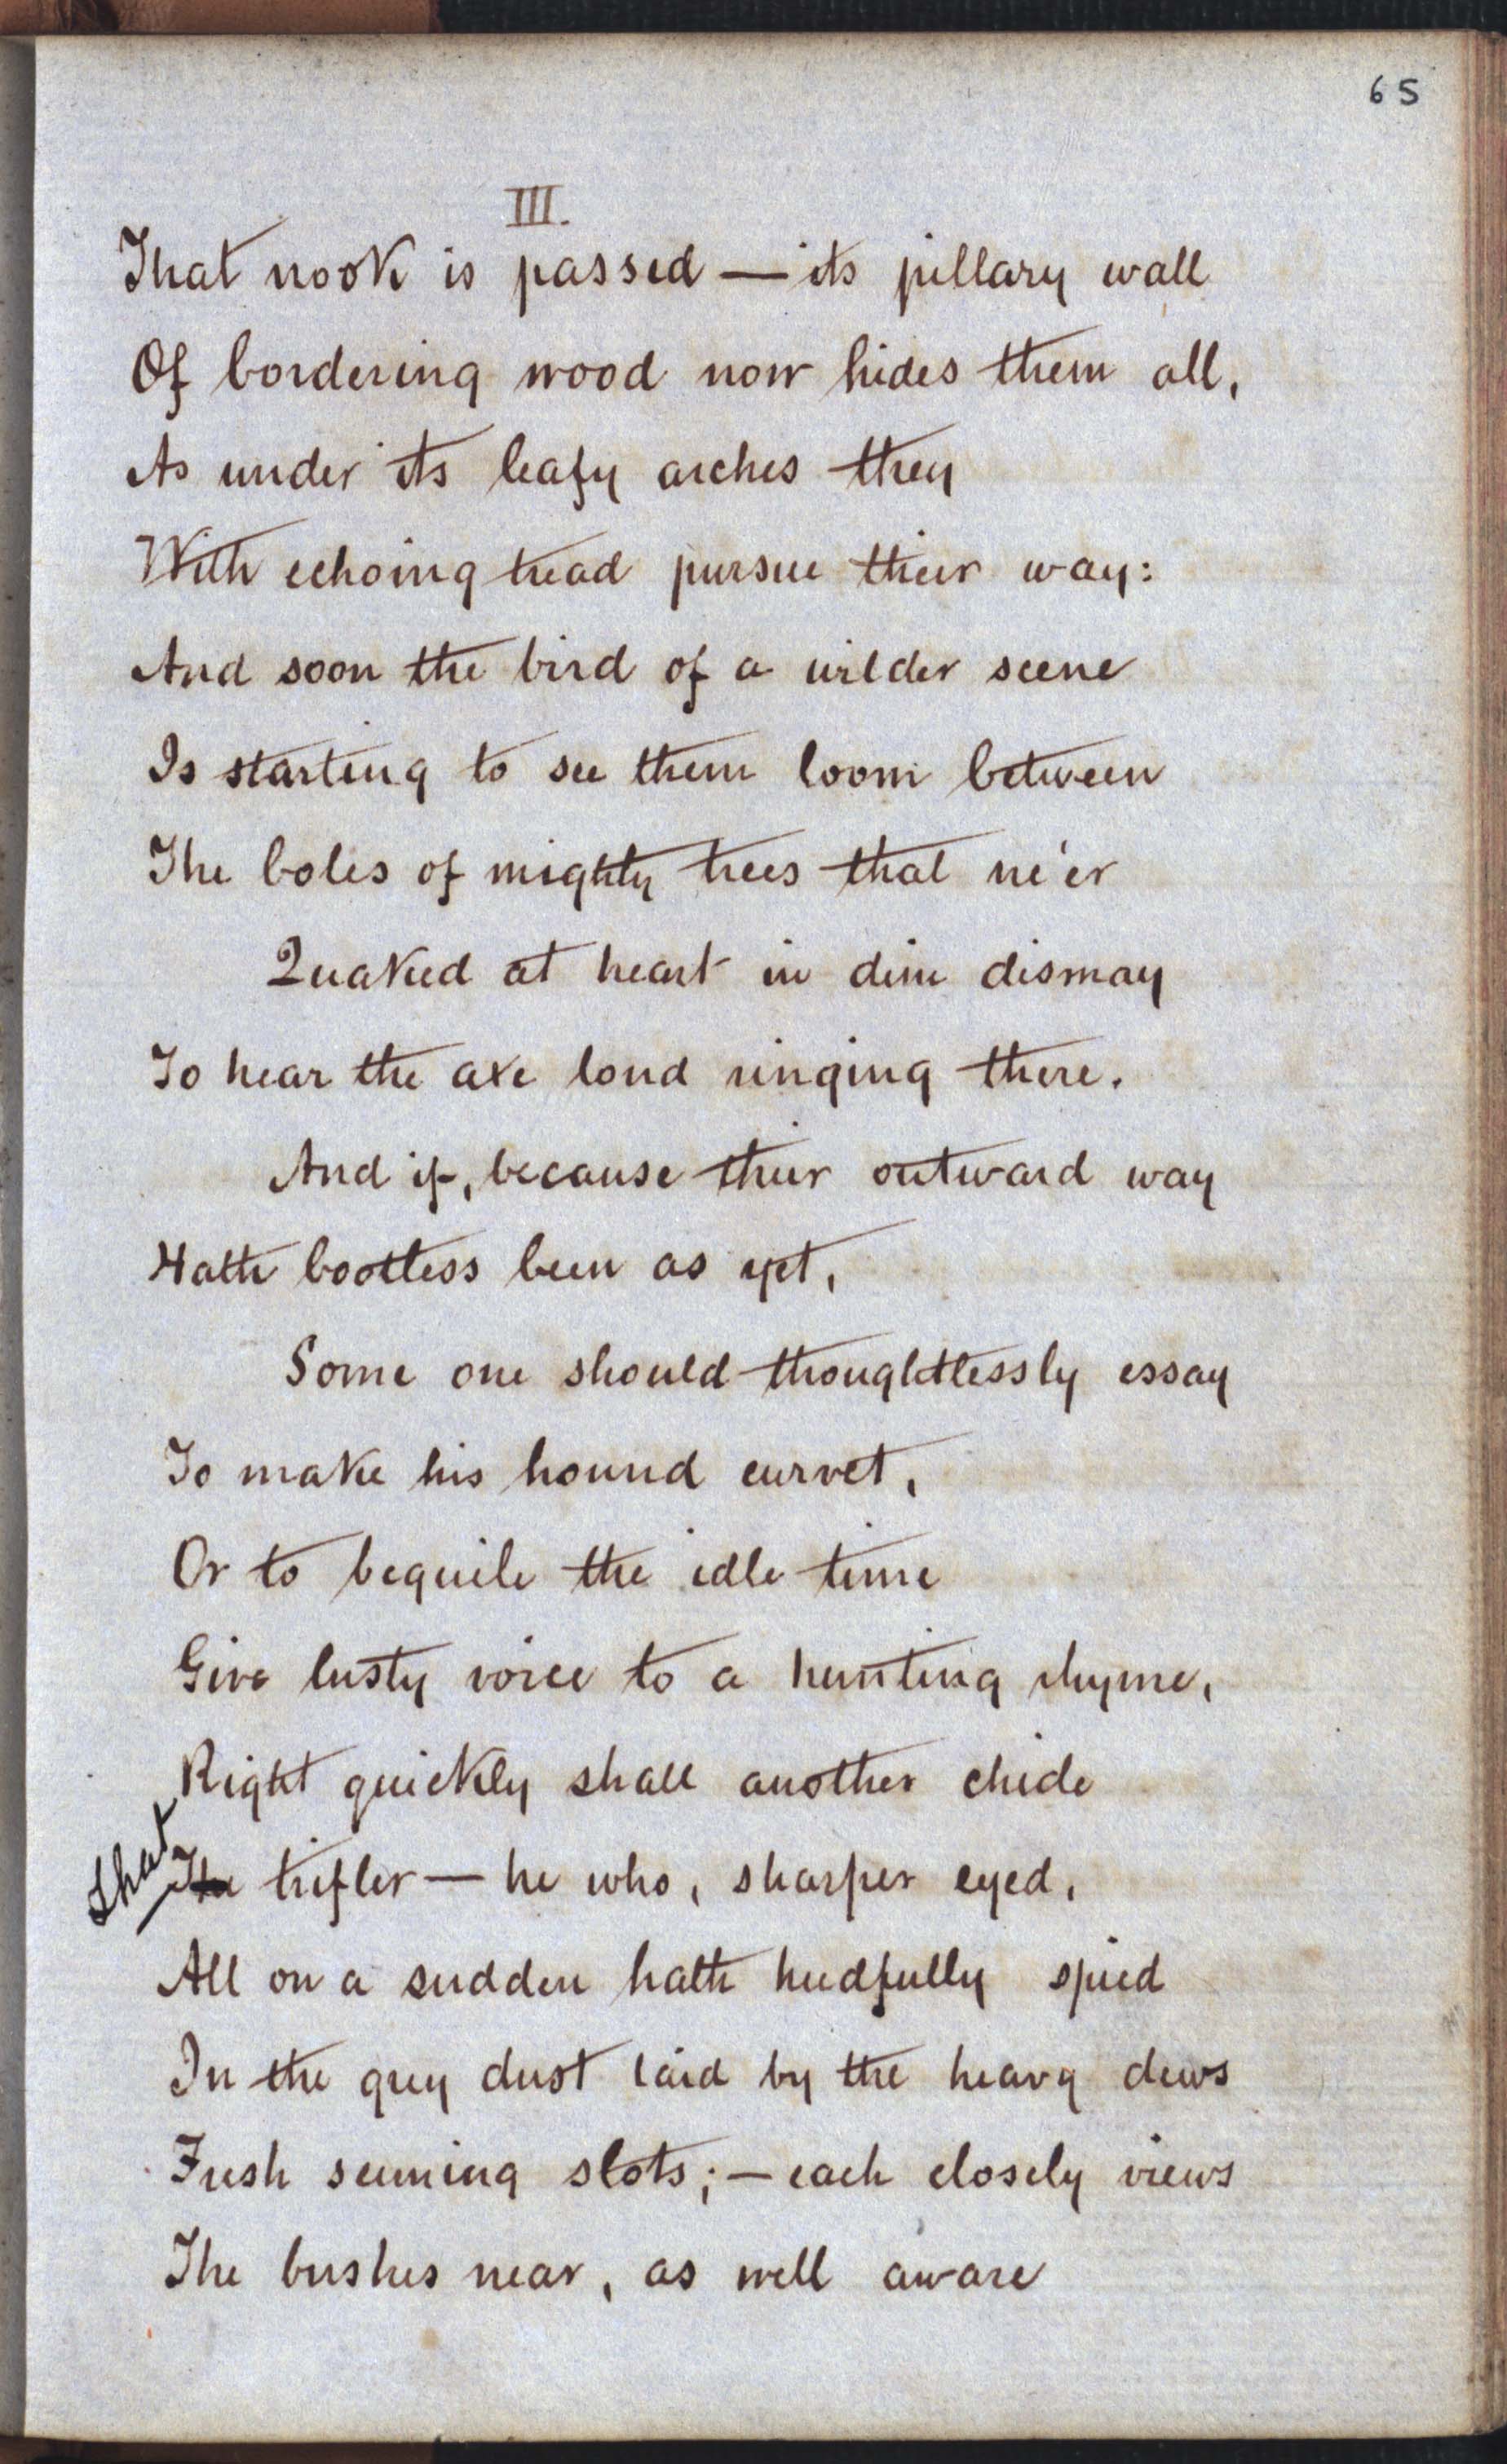 65
III.
That nook is passed — its pillary wall
Of bordering wood now hides them all,
As under its leafy arches they
With echoing tread pursue their way:
And soon the bird of a wilder scene
Is starting to see them loom between
The boles of mighty trees that ne'er
Quaked at heart in dim dismay
To hear the axe loud ringing there.
And if, because their outward way
Hath bootless been as yet,
Some one should thoughtlessly essay
To make his hound curvet,
Or to beguile the idle time
Give lusty voice to a hunting rhyme,
Right quickly shall another chide
That The trifler — he who, sharper eyed,
All on a sudden hath heedfully spied
In the grey dust laid by the heavy dews
Fresh seeming slots; — each closely views
The bushes near, as well aware